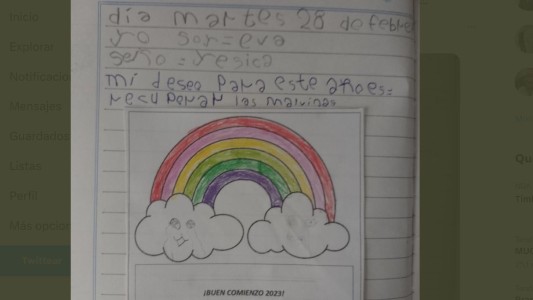 Inicio
Explorar
Notificacion
Mensajes
Guardados
Listas
Perfil
Más opcion
Twittear
día martes 28 de febre
yo soy=eva
seño = yesica
mi deseo para este año es=
recuperar las malvinas
¡BUEN COMIENZO 2023!
Qu